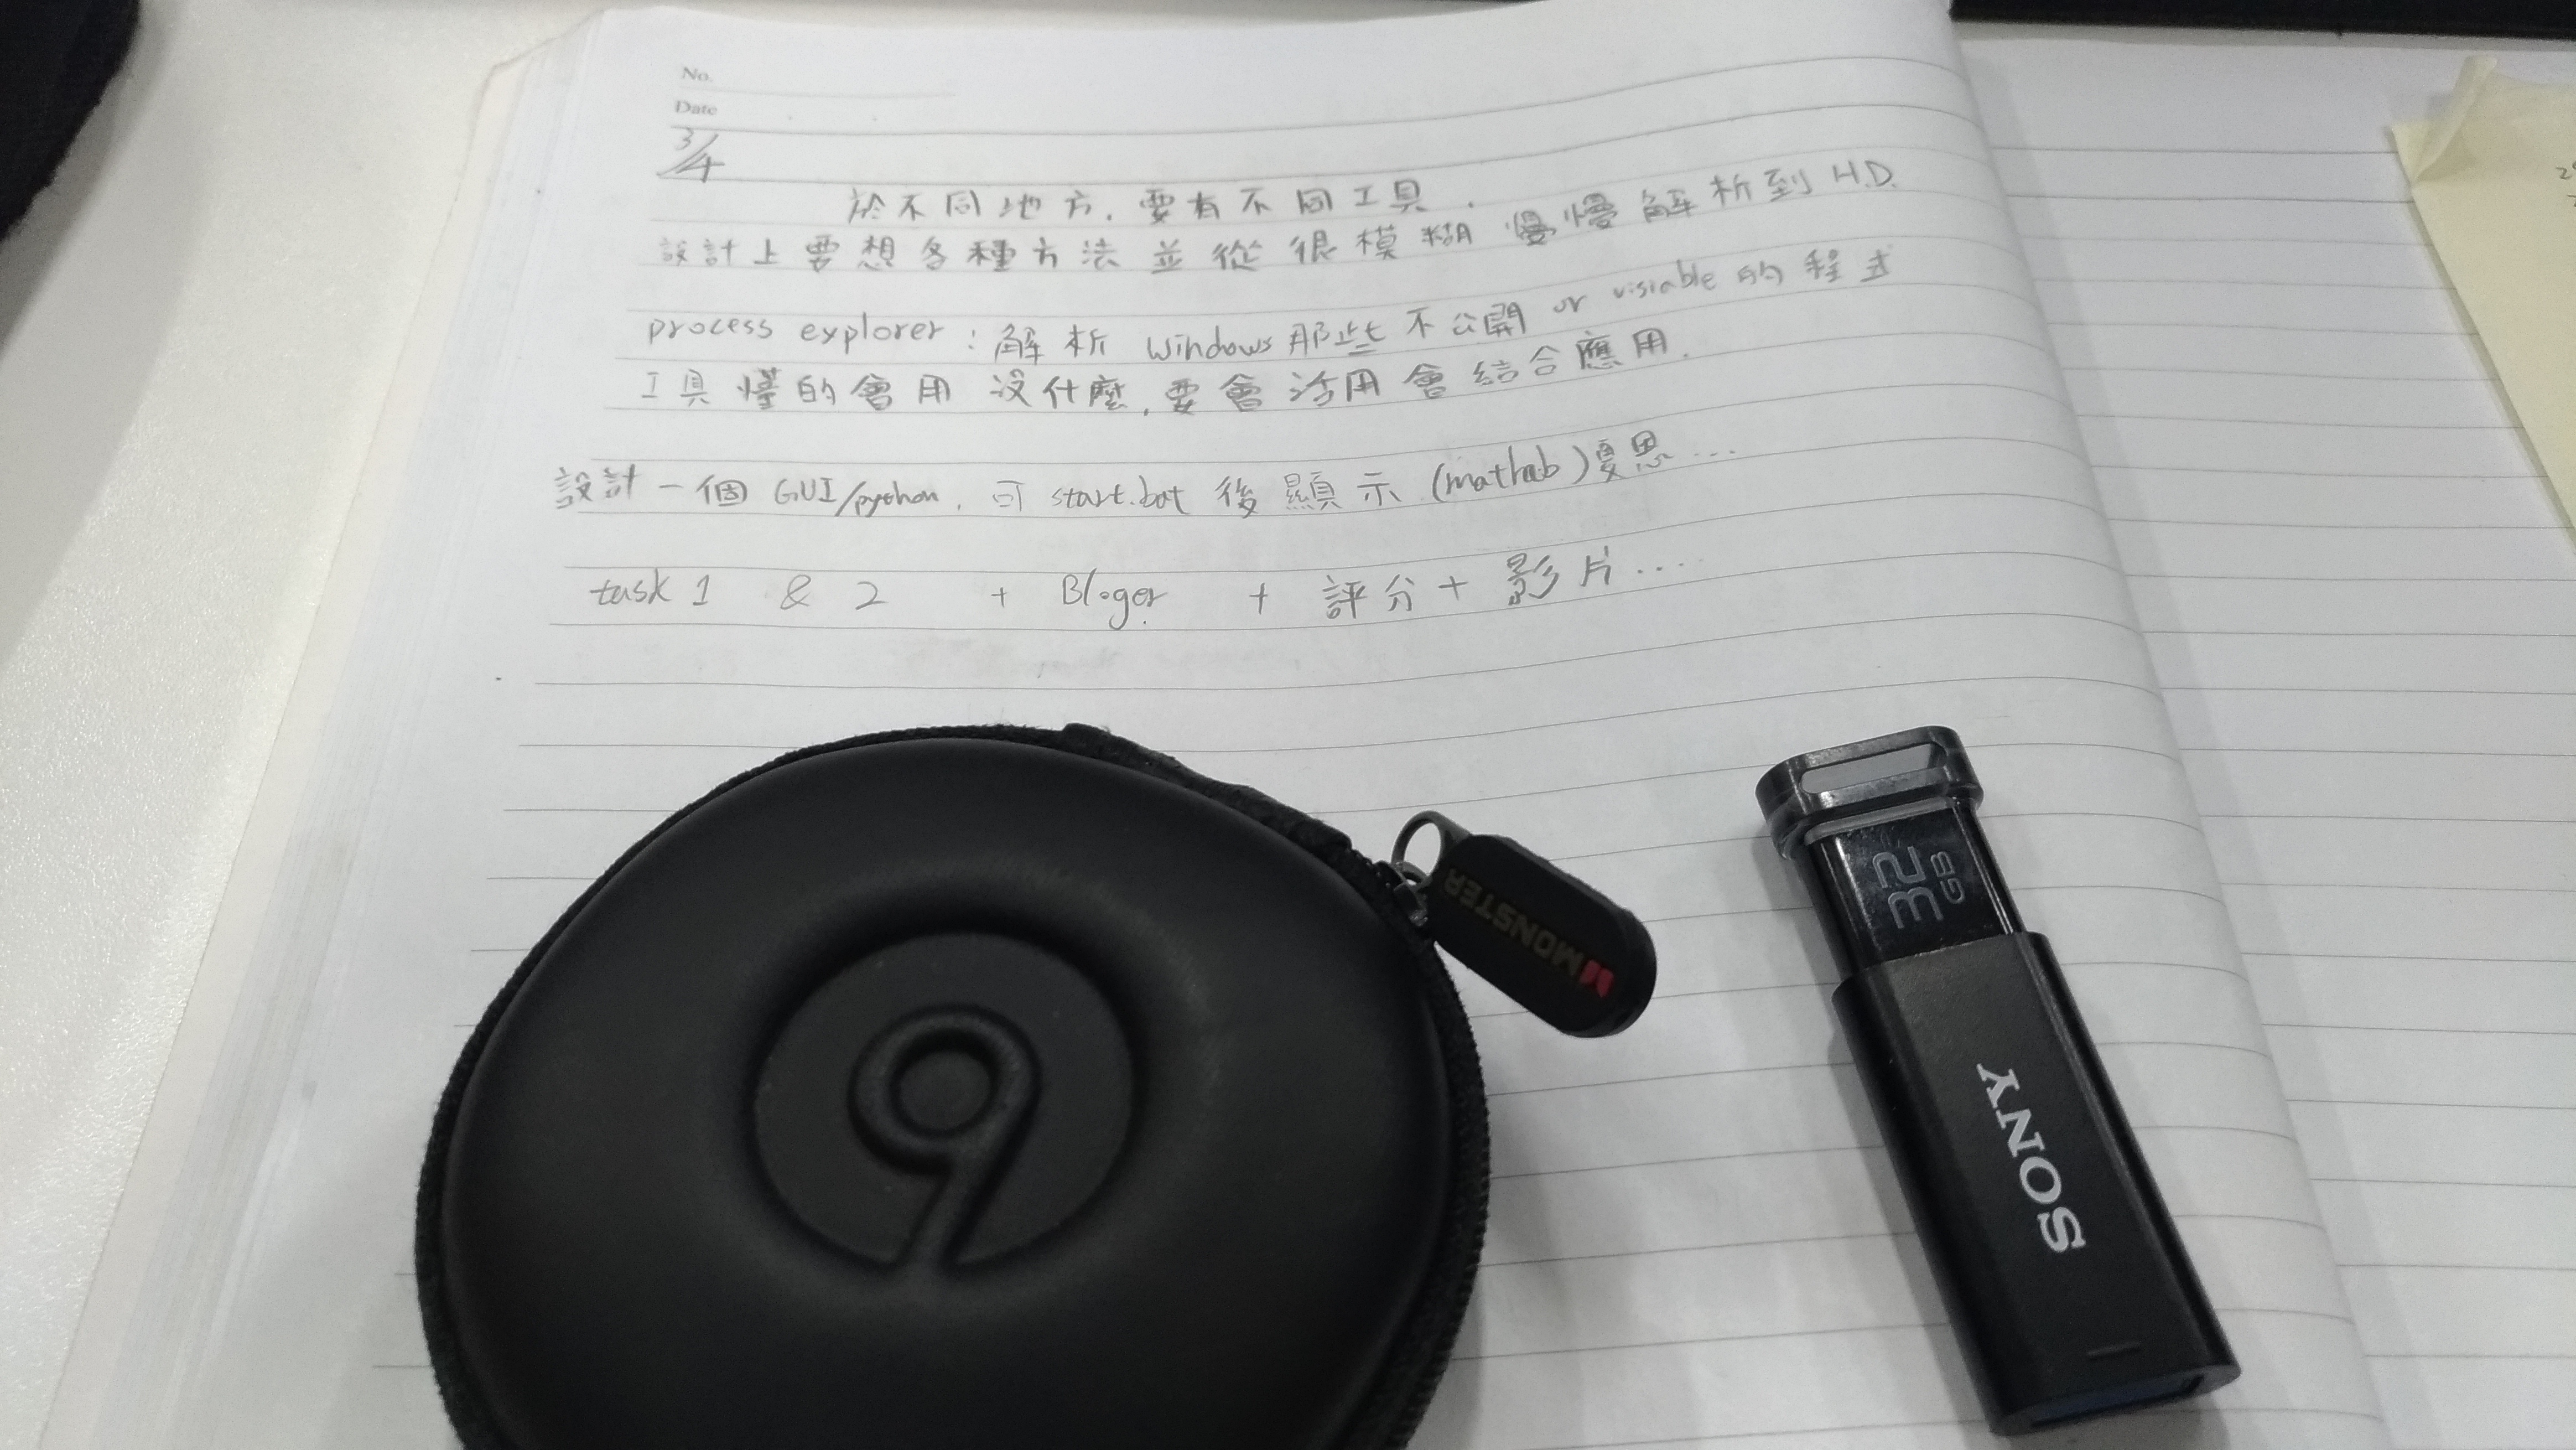 No.
Date
3/4
於不同地方,要有不同工具.
設計上要想各種方法並從很模糊慢慢解析到H.D.
process explorer:解析 windows那些不公開 or visiable 的程式
工具懂的會用 沒什麼,要會活用會結合應用.
設計一個 GUI/python, 可 start.bat 後顯示 (mathab)...
task 1 & 2 + Bloger + 評分 + 影片....
MONSTER
32
GB
SONY